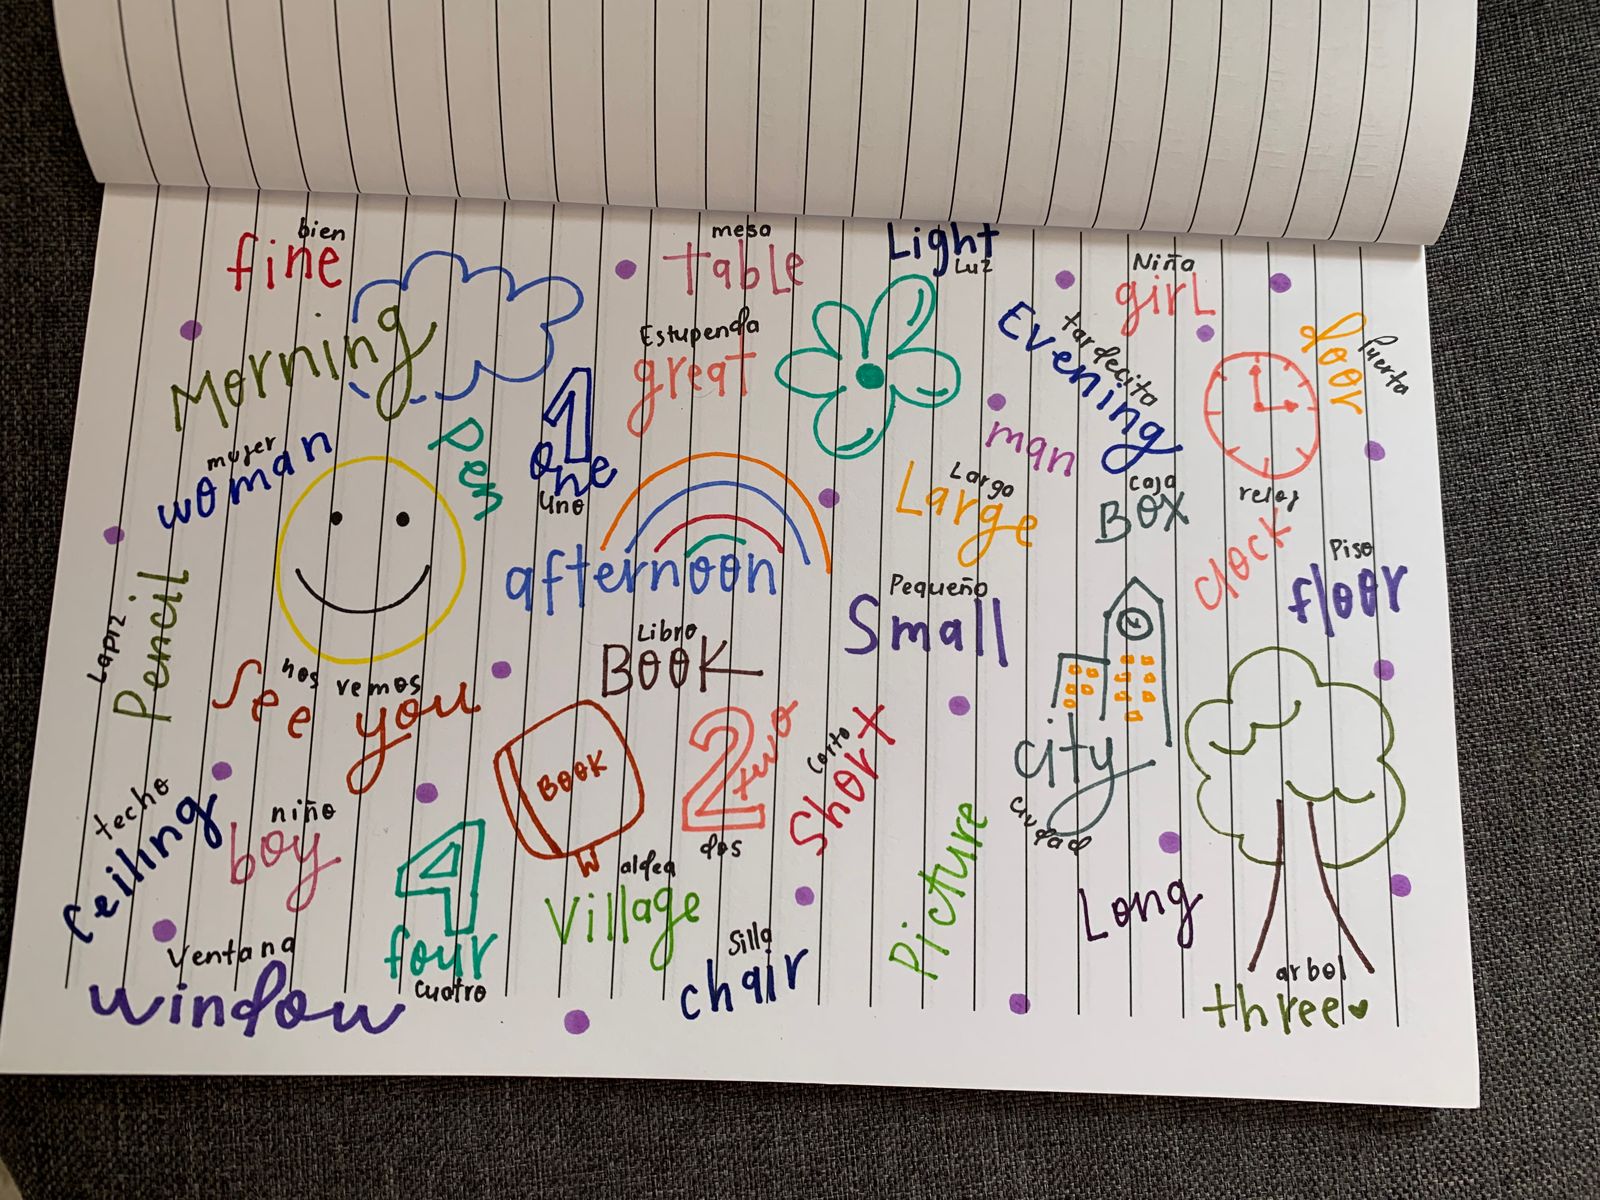 bien
fine
mesa
table
Light
Luz
Niña
girL
Morning
Estupenda
great
Evening
tardecito
door
Puerta
mujer
woman
Pen
1
one
uno
man
Largo
Large
caja
BOX
reloj
clock
Piso
floor
afternoon
Lapiz
Pencil
Pequeño
Small
Libro
BOOK
nos vemos
See you
BOOK
2
two
dos
Corto
Short
city
ciudad
techo
ceiling
niño
boy
4
four
cuatro
aldea
Village
Picture
Long
Silla
chair
Ventana
window
arbol
three